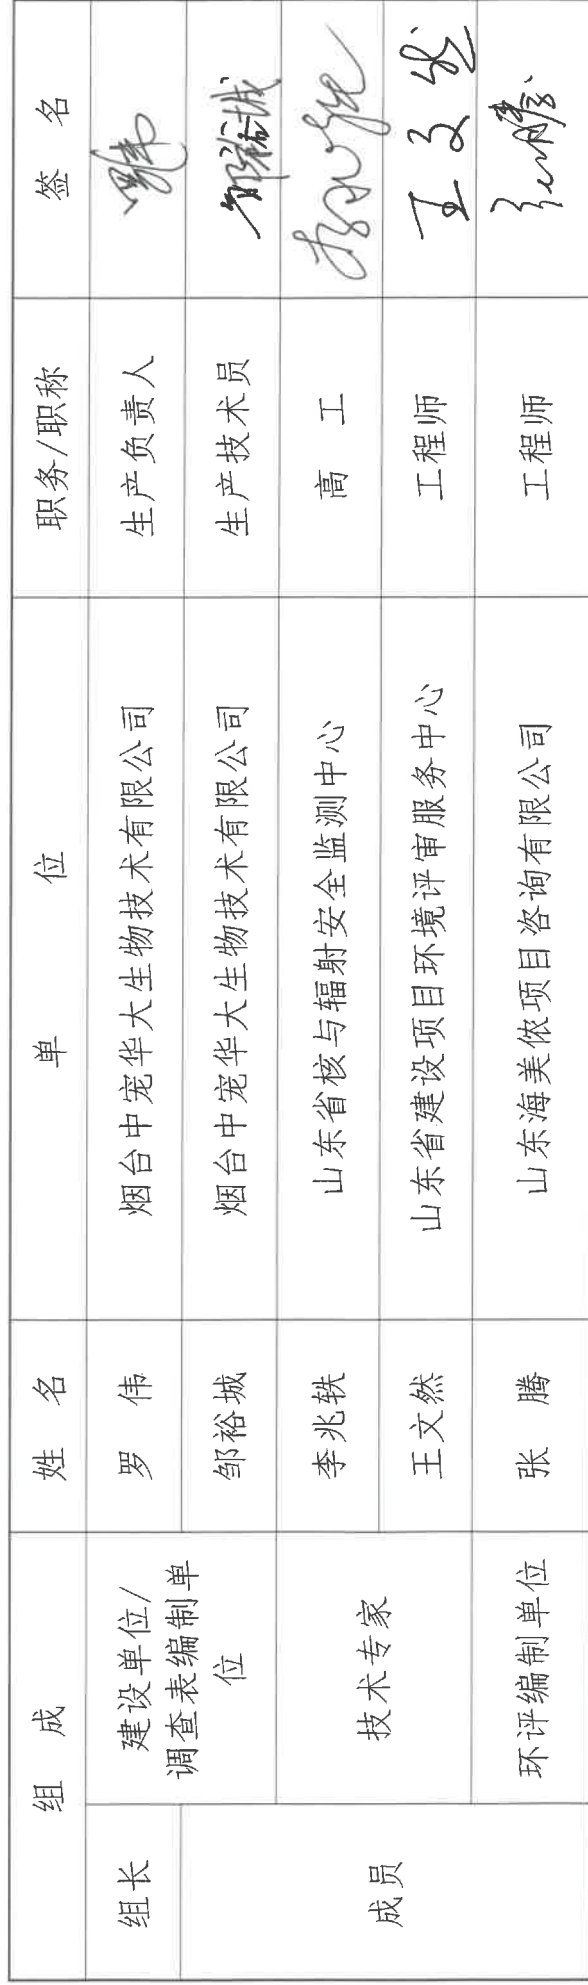 组 成 姓 名 单 位 职务/职称 签 名
组长 建设单位/
调查表编制单
位 罗 伟 烟台中宠华大生物技术有限公司 生产负责人
邹裕城 烟台中宠华大生物技术有限公司 生产技术员 邹裕城
成员 技术专家 李兆轶 山东省核与辐射安全监测中心 高 工
王文然 山东省建设项目环境评审服务中心 工程师 王文然
环评编制单位 张 腾 山东海美侬项目咨询有限公司 工程师 张腾